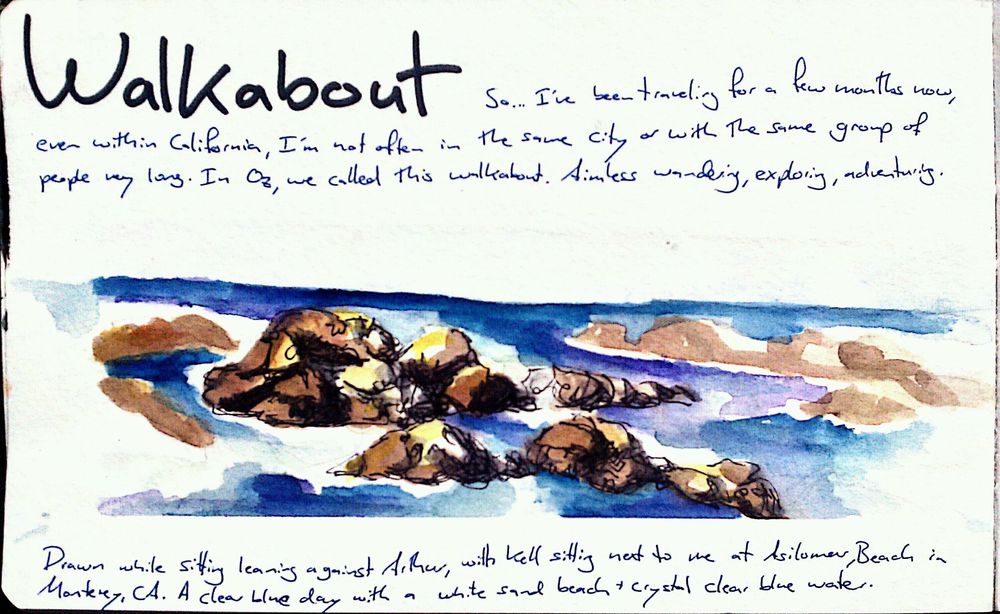 Walkabout
So... I've been traveling for a few months now,
even within California, I'm not often in the same city or with the same group of
people very long. In Oz, we called this walkabout. Aimless wandering, exploring, adventuring.
Drawn while sitting leaning against Arthur, with Kell sitting next to me at Asilomar Beach in
Monterey, CA. A clear blue day with a white sand beach + crystal clear blue water.